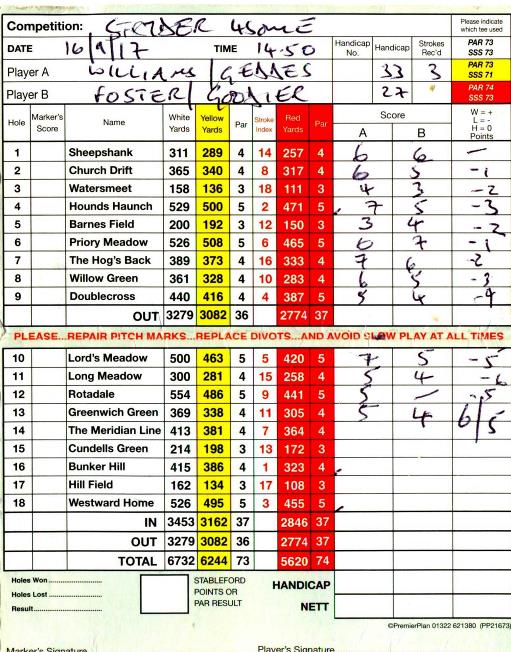 Competition: GEORDER 4SOME
Please indicate which tee used
DATE 16/9/17 TIME 14.50 Handicap No. Handicap Strokes Rec'd PAR 73 SSS 73
Player A WILLIAMS / GEDDES 33 3 PAR 73 SSS 71
Player B FOSTER / GOODIER 27 PAR 74 SSS 73
Hole Marker's Score Name White Yards Yellow Yards Par Stroke Index Red Yards Par Score A B W = + L = - H = 0 Points
1 Sheepshank 311 289 4 14 257 4 6 6 –
2 Church Drift 365 340 4 8 317 4 6 5 -1
3 Watersmeet 158 136 3 18 111 3 4 3 -2
4 Hounds Haunch 529 500 5 2 471 5 7 5 -3
5 Barnes Field 200 192 3 12 150 3 3 4 -2
6 Priory Meadow 526 508 5 6 465 5 6 7 -1
7 The Hog's Back 389 373 4 16 333 4 7 6 -2
8 Willow Green 361 328 4 10 283 4 6 5 -3
9 Doublecross 440 416 4 4 387 5 5 4 -4
OUT 3279 3082 36 2774 37
PLEASE...REPAIR PITCH MARKS...REPLACE DIVOTS...AND AVOID SLOW PLAY AT ALL TIMES
10 Lord's Meadow 500 463 5 5 420 5 7 5 -5
11 Long Meadow 300 281 4 15 258 4 5 4 -6
12 Rotadale 554 486 5 9 441 5 5 – -5
13 Greenwich Green 369 338 4 11 305 4 5 4 6/5
14 The Meridian Line 413 381 4 7 364 4
15 Cundells Green 214 198 3 13 172 3
16 Bunker Hill 415 386 4 1 323 4
17 Hill Field 162 134 3 17 108 3
18 Westward Home 526 495 5 3 455 5
IN 3453 3162 37 2846 37
OUT 3279 3082 36 2774 37
TOTAL 6732 6244 73 5620 74
Holes Won
Holes Lost
Result
STABLEFORD POINTS OR PAR RESULT
HANDICAP
NETT
©PremierPlan 01322 621380 (PP21673)
Marker's Signature Player's Signature